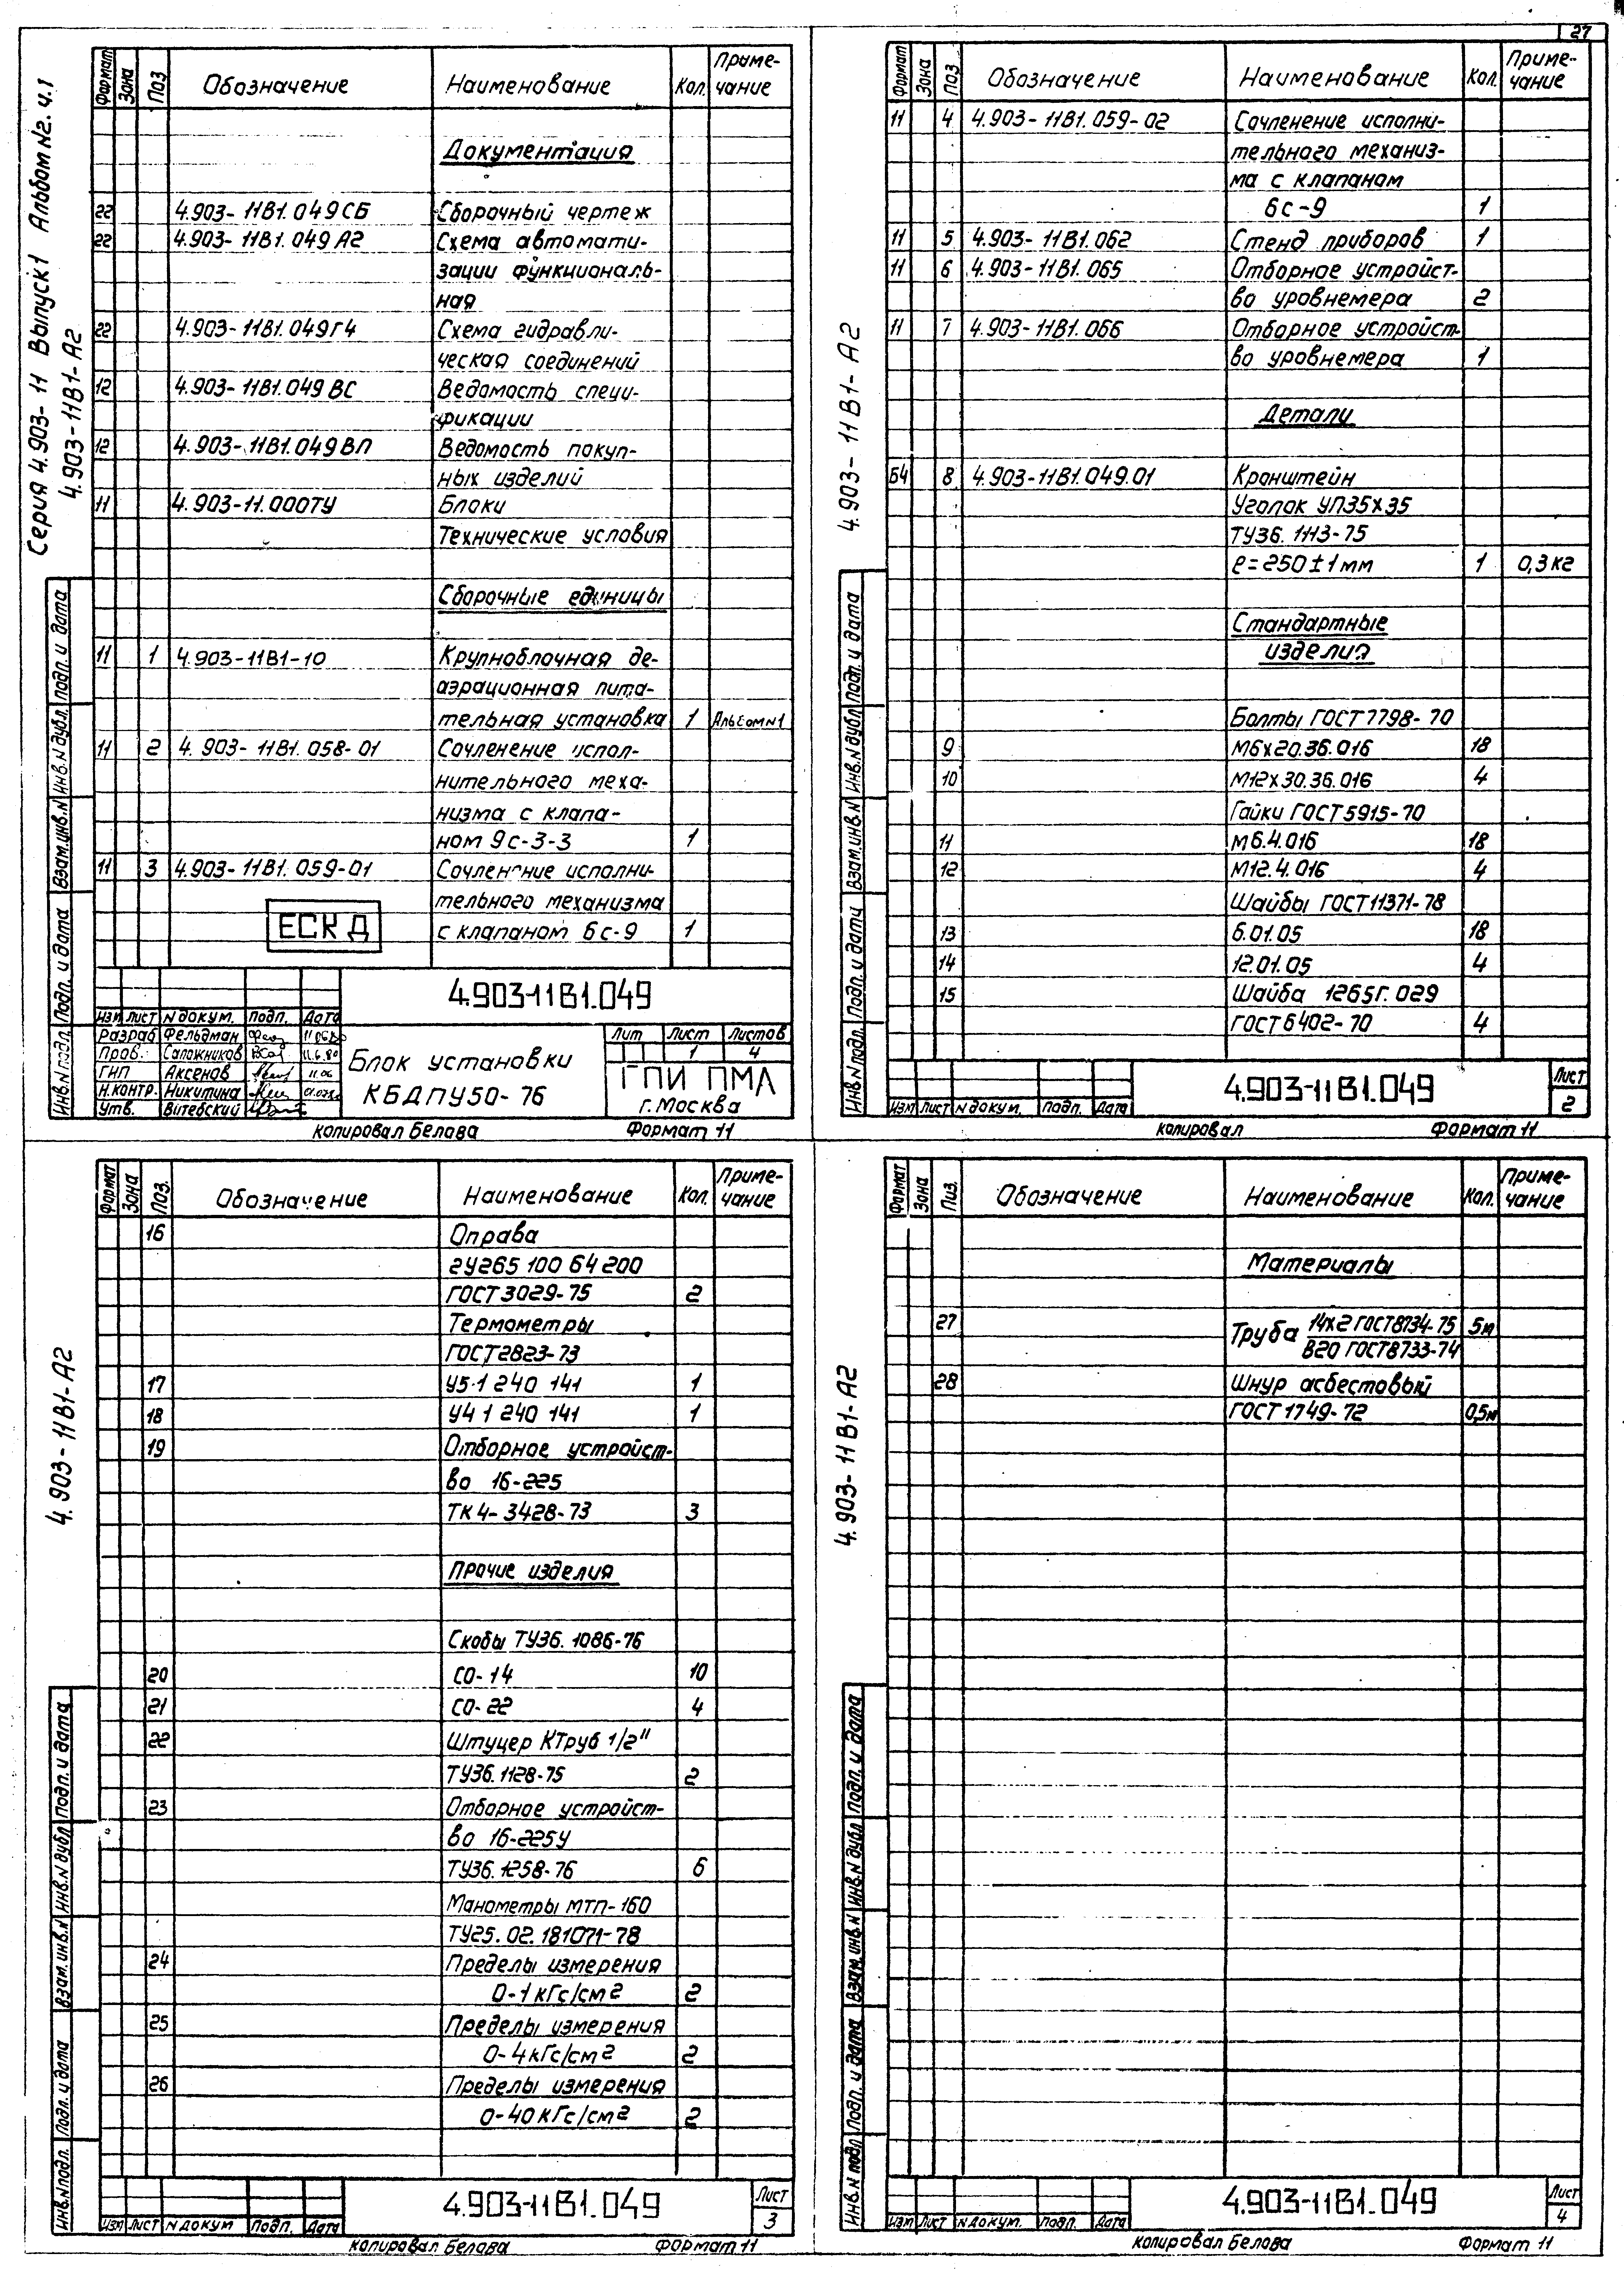 27
Серия 4.903-11 Выпуск 1 Альбом №2. ч.1
4.903-11В1-А2
Формат Зона Поз Обозначение Наименование Кол. Примечание
Документация
22 4.903-11В1.049СБ Сборочный чертеж
22 4.903-11В1.049А2 Схема автомати-
зации функциональ-
ная
22 4.903-11В1.049Г4 Схема гидравли-
ческая соединений
12 4.903-11В1.049ВС Ведомость специ-
фикации
12 4.903-11В1.049ВП Ведомость покуп-
ных изделий
11 4.903-11.000ТУ Блоки
Технические условия
Сборочные единицы
11 1 4.903-11В1-10 Крупноблочная де-
аэрационная пита-
тельная установка 1 Альбом №1
11 2 4.903-11В1.058-01 Сочленение испол-
нительного меха-
низма с клапа-
ном 9с-3-3 1
11 3 4.903-11В1.059-01 Сочленение исполни-
тельного механизма
с клапаном 6с-9 1
ЕСКД
4.903-11В1.049
Изм Лист N докум. Подп. Дата
Разраб Фельдман
Пров. Сапожников 11.6.80
ГИП Аксенов 11.06
Н.контр. Никитина
Утв. Витебский
Блок установки
КБДПУ50-76
Лит Лист Листов
1 4
ГПИ ПМА
г.Москва
Инв.N подл. Подп. и дата Взам.инв.N Инв.N дубл. Подп. и дата
Копировал Белова Формат 11
4.903-11В1-А2
Формат Зона Поз Обозначение Наименование Кол. Примечание
11 4 4.903-11В1.059-02 Сочленение исполни-
тельного механиз-
ма с клапаном
6с-9 1
11 5 4.903-11В1.062 Стенд приборов 1
11 6 4.903-11В1.065 Отборное устройст-
во уровнемера 2
11 7 4.903-11В1.066 Отборное устройст-
во уровнемера 1
Детали
Б4 8 4.903-11В1.049.01 Кронштейн
Уголок УП35х35
ТУ36.1113-75
ℓ=250±1мм 1 0,3кг
Стандартные
изделия
Болты ГОСТ7798-70
9 М6х20.36.016 18
10 М12х30.36.016 4
Гайки ГОСТ5915-70
11 М6.4.016 18
12 М12.4.016 4
Шайбы ГОСТ11371-78
13 6.01.05 18
14 12.01.05 4
15 Шайба 1265Г.029
ГОСТ6402-70 4
4.903-11В1.049
Лист
2
Изм Лист N докум. Подп. Дата
Инв.N подл. Подп. и дата Взам.инв.N Инв.N дубл Подп. и дата
Копировал Формат 11
4.903-11В1-А2
Формат Зона Поз. Обозначение Наименование Кол. Примечание
16 Оправа
2У265 100 64 200
ГОСТ3029-75 2
Термометры
ГОСТ2823-73
17 У5·1 240 141 1
18 У4 1 240 141 1
19 Отборное устройст-
во 16-225
ТК4-3428-73 3
Прочие изделия
Скобы ТУ36.1086-76
20 СО-14 10
21 СО-22 4
22 Штуцер КТруб 1/2"
ТУ36.1128-75 2
23 Отборное устройст-
во 16-225У
ТУ36.1258-76 6
Манометры МТП-160
ТУ25.02.181071-78
24 Пределы измерения
0-1кГс/см2 2
25 Пределы измерения
0-4кГс/см2 2
26 Пределы измерения
0-40кГс/см2 2
4.903-11В1.049
Лист
3
Изм Лист N докум Подп. Дата
Инв.N подл. Подп. и дата Взам.инв.N Инв.N дубл Подп. и дата
Копировал Белова Формат 11
4.903-11В1-А2
Формат Зона Поз. Обозначение Наименование Кол. Примечание
Материалы
27 Труба 14х2 ГОСТ8734-75 5м
В20 ГОСТ8733-74
28 Шнур асбестовый
ГОСТ1749-72 0,5м
4.903-11В1.049
Лист
4
Изм Лист N докум. Подп. Дата
Инв.N подл Подп. и дата Взам.инв.N Инв.N дубл Подп. и дата
Копировал Белова Формат 11